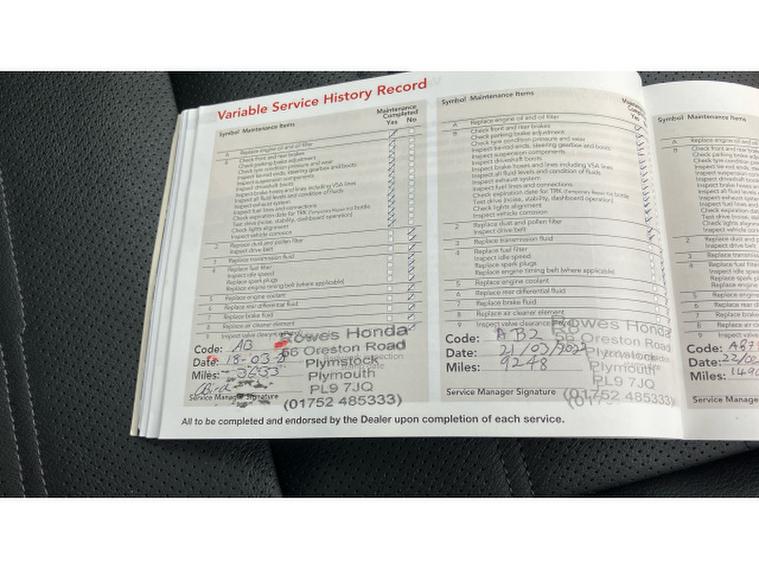 Variable Service History Record
Symbol Maintenance Items
Maintenance
Completed
Yes No
A Replace engine oil and oil filter
B Check front and rear brakes
Check parking brake adjustment
Check tyre condition and pressure and wear
Inspect tie-rod ends, steering gearbox and boots
Inspect suspension components
Inspect driveshaft boots
Inspect brake hoses and lines including VSA lines
Inspect all fluid levels and condition of fluids
Inspect exhaust system
Inspect fuel lines and connections
Check expiration date for TRK (Temporary Repair Kit) bottle
Test drive (noise, stability, dashboard operation)
Check lights alignment
Inspect vehicle corrosion
2 Replace dust and pollen filter
Inspect drive belt
3 Replace transmission fluid
4 Replace fuel filter
Inspect idle speed
Replace spark plugs
Replace engine timing belt (where applicable)
5 Replace engine coolant
6 Replace rear differential fluid
7 Replace brake fluid
8 Replace air cleaner element
9 Inspect valve clearance
Code: AB
Date: 18-03-2
Miles:
Service Manager Signature
Rowes Honda
56 Oreston Road
Plymstock
Plymouth
PL9 7JQ
(01752 485333)
Symbol Maintenance Items
Yes
A Replace engine oil and oil filter
B Check front and rear brakes
Check parking brake adjustment
Check tyre condition and pressure and wear
Inspect tie-rod ends, steering gearbox and boots
Inspect suspension components
Inspect driveshaft boots
Inspect brake hoses and lines including VSA lines
Inspect all fluid levels and condition of fluids
Inspect exhaust system
Inspect fuel lines and connections
Check expiration date for TRK (Temporary Repair Kit) bottle
Test drive (noise, stability, dashboard operation)
Check lights alignment
Inspect vehicle corrosion
2 Replace dust and pollen filter
Inspect drive belt
3 Replace transmission fluid
4 Replace fuel filter
Inspect idle speed
Replace spark plugs
Replace engine timing belt (where applicable)
5 Replace engine coolant
6 Replace rear differential fluid
7 Replace brake fluid
8 Replace air cleaner element
9 Inspect valve clearance
Code: AB2
Date: 21/02/2022
Miles: 9248
Service Manager Signature
Rowes Honda
56 Oreston Road
Plymstock
Plymouth
PL9 7JQ
(01752 485333)
All to be completed and endorsed by the Dealer upon completion of each service.
Symbol Maintenance Items
A Replace engine oil and
B Check front and rear
Check parking brake
Check tyre condition
3 Replace transmission
4 Replace fuel filter
Inspect idle speed
Replace spark
Replace engine
5 Replace engine
6 Replace rear
7 Replace brake
8 Replace air
9 Inspect valve
Code: AB7
Date: 22/0
Miles: 149
Service Manager